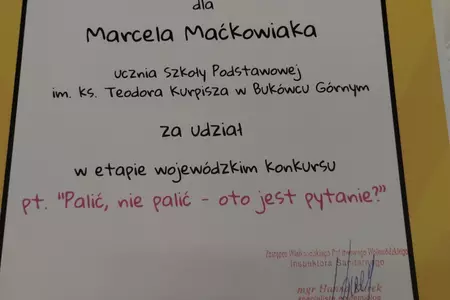 dla
Marcela Maćkowiaka
ucznia Szkoły Podstawowej
im. ks. Teodora Kurpisza w Bukówcu Górnym
za udział
w etapie wojewódzkim konkursu
pt. "Palić, nie palić - oto jest pytanie?"
Inspektora Sanitarnego
mgr Hanna